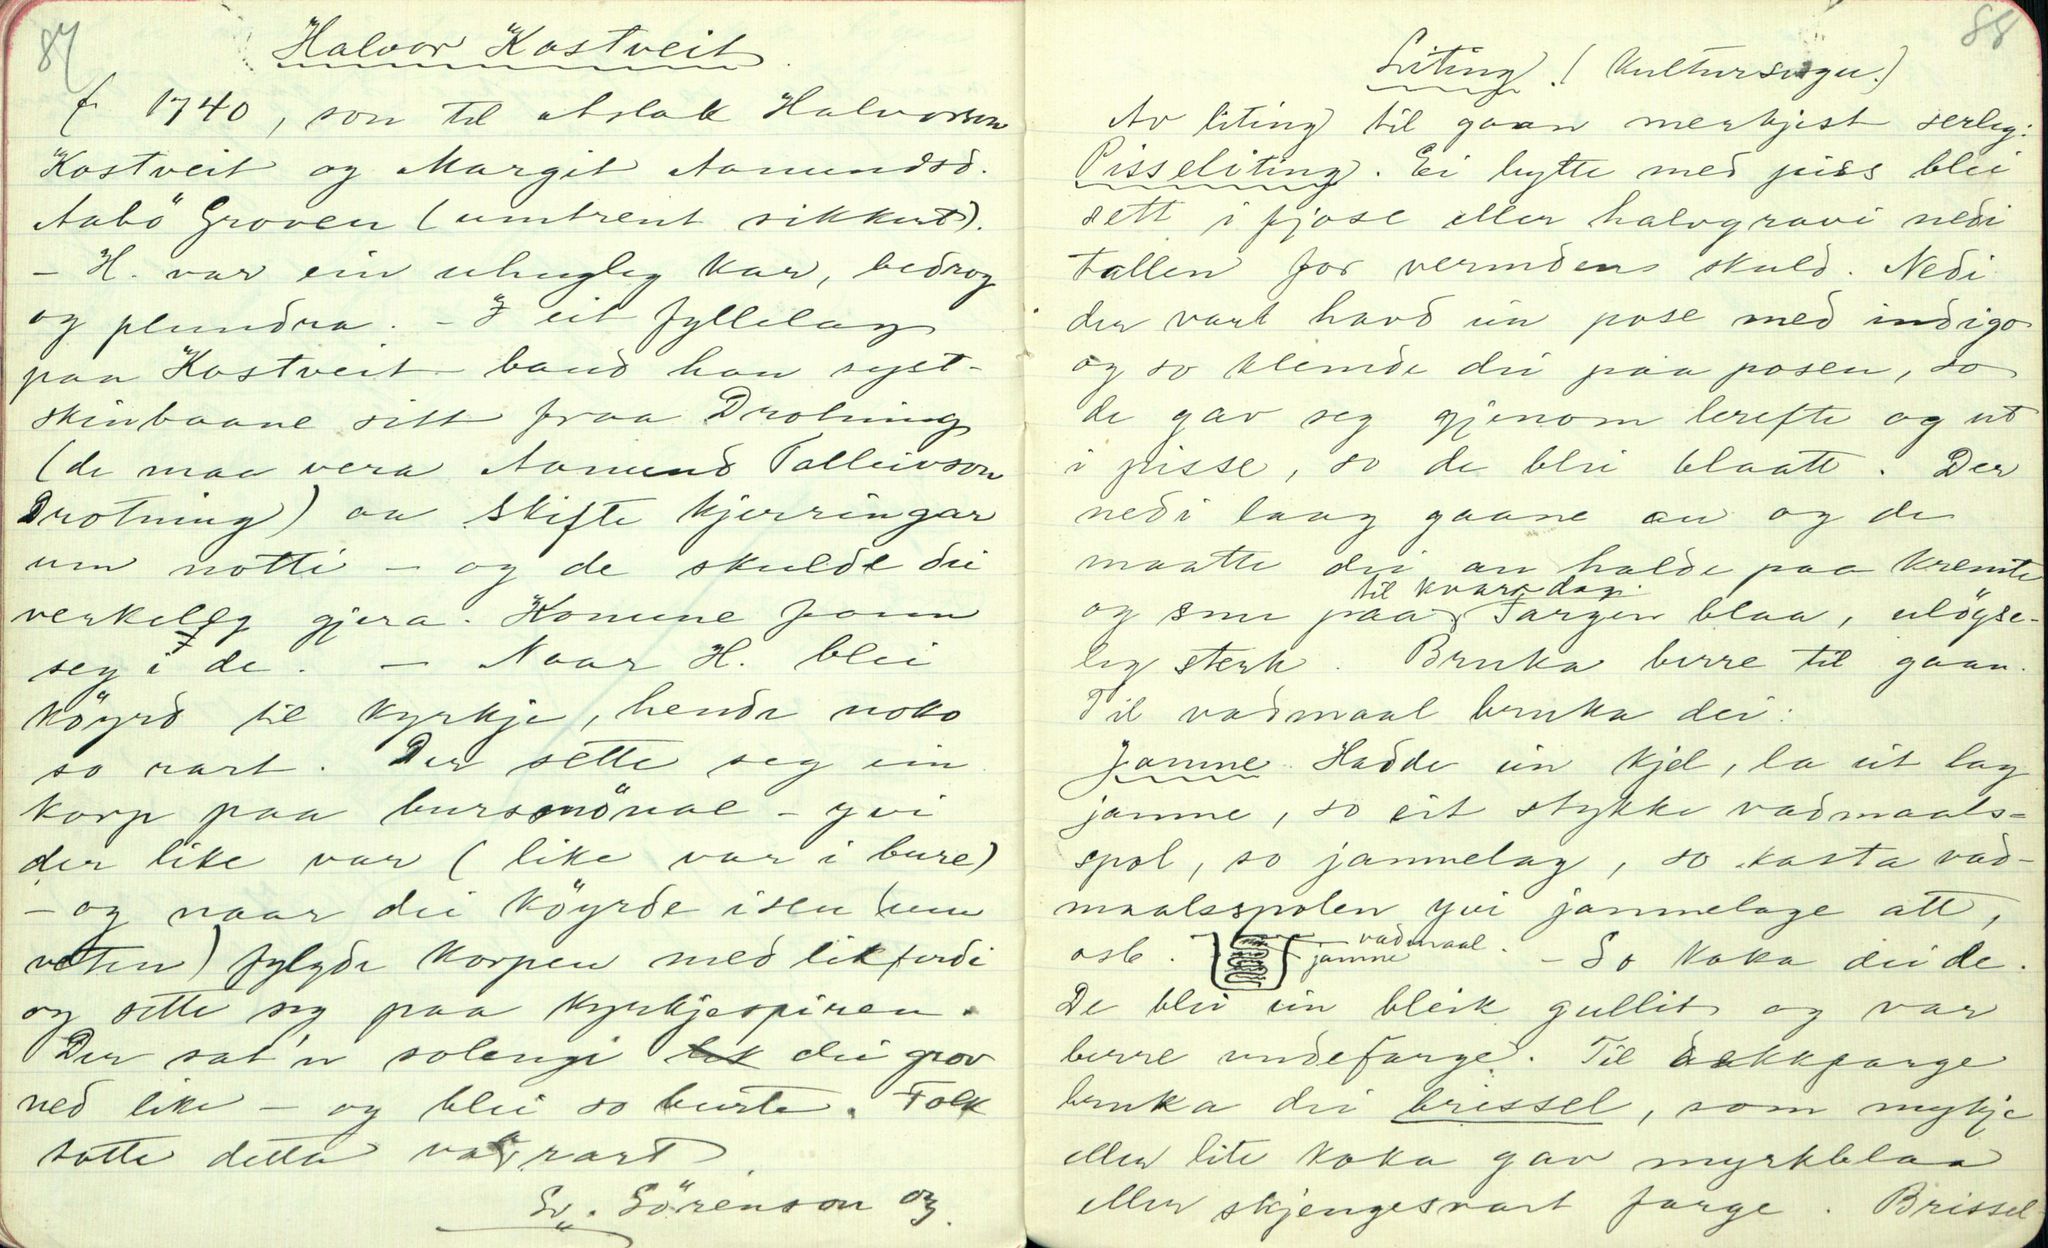 87
Halvor Kostveit.
f 1740, son til Aslak Halvorson
Kostveit og Margit Aamundsd.
Aabö Groven (umtrent sikkert).
- H. var ein uhugleg kar, bedrog
og plundra. - I eit fyllelag
paa Kostveit baud han syst-
skinbaane sitt fraa Drotning
(de maa vera Aamund Talleivson
Drotning) aa skifte kjerringar
um notti - og de skulde dei
verkeleg gjera. Konune fann
seg i de. - Naar H. blei
köyrd til kyrkje, hende noko
so rart. Der sette seg ein
korp paa bursmönae - yvi
der like var (like var i bure)
- og naar dei köyrde isen (um
veteren) fylgde korpen med likferdi
og sette seg paa kyrkjespiren.
Der sat'n solengi dei grov
ned like - og blei so burte. Folk
totte detta va rart.
Sv. Sörenson og.
88
Liting. (Kultursogu.)
Av liting til gaan merkjest serleg:
Pisseliting. Ei bytte med piss blei
sett i fjose eller halvgravi nedi
tallen for varmdens skuld. Nedi
der vart havd ein pose med indigo
og so klemde dei paa posen, so
de gav seg gjenom lerefte og ut
i pisse, so de blei blaatt. Der
nedi laag gaane au og de
maatte dei au halde paa kremte
og snu paa til kvar dag. Fargen blaa, ulögse-
leg sterk. Bruka berre til gaan.
Til vadmaal bruka dei:
Jamne. Hadde ein kjel, la eit lag
jamne, so eit stykke vadmaals-
spol, so jamnelag, so kasta vad-
maalsspolen yvi jamnelage att,
osb. vadmaal jamne - So koka dei de.
De blei ein bleik gullit og var
berre undefarge. Til dekkfarge
bruka dei brissel, som mykje
eller lite koka gav myrkblaa
eller skjengesvart farge. Brissel